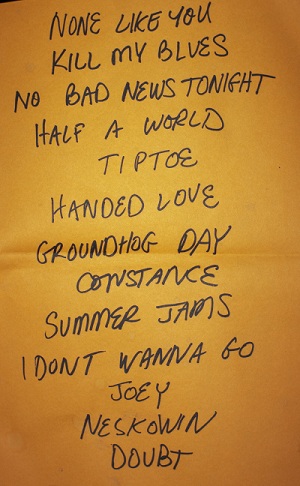 NONE LIKE YOU
KILL MY BLUES
NO BAD NEWS TONIGHT
HALF A WORLD
TIPTOE
HANDED LOVE
GROUNDHOG DAY
CONSTANCE
SUMMER JAMS
I DONT WANNA GO
JOEY
NESKOWIN
DOUBT